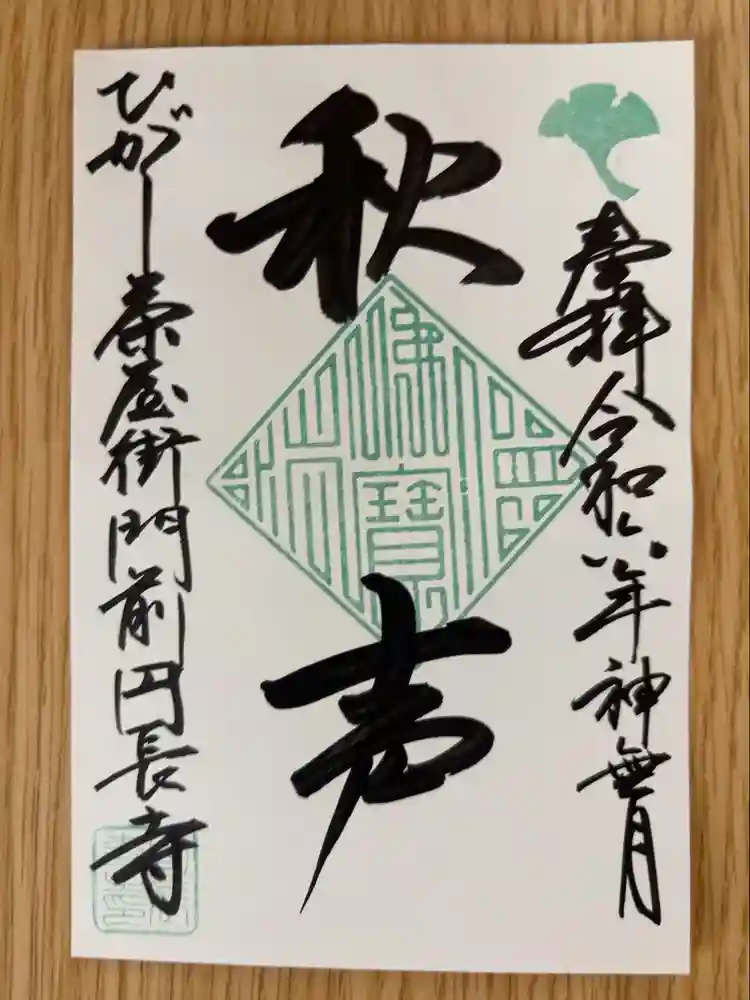 奉拝 令和六年 神無月
秋声
佛 寶
ひがし茶屋街門前円長寺